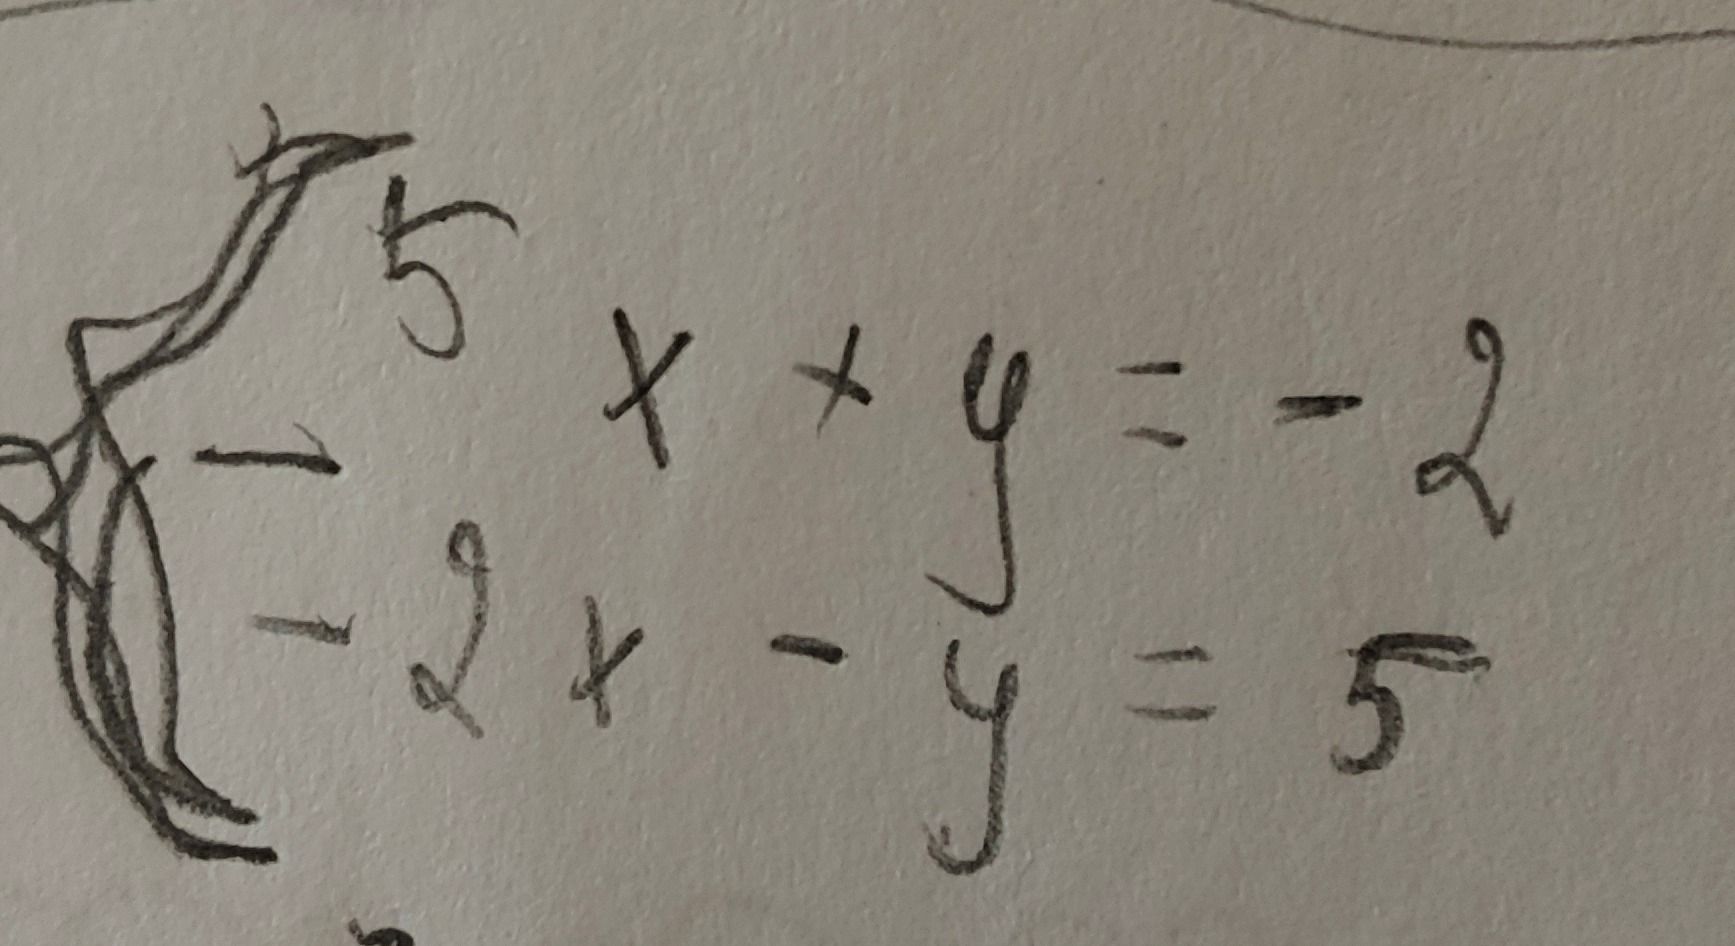 5x + y = -2
- 2x - y = 5